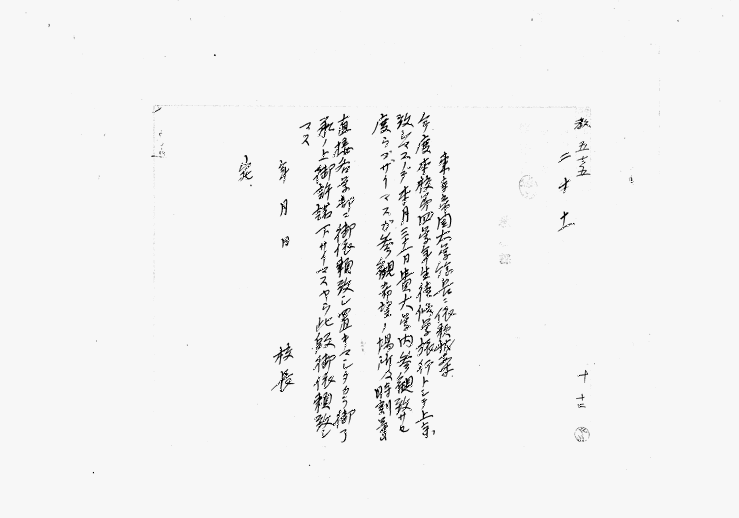 教五五五
二、十、十一
十、十二
東京帝国大学総長ニ依頼状案
今度本校第四学年生徒修学旅行トシテ上京
致シマスノデ来月二十一日貴大学内参観致サセ
度ウゴザイマスガ参観希望ノ場所及時刻等ハ
直接各学部ニ御依頼致シ置キマシタカラ御了
承ノ上御許諾下サイマスヤウ此段御依頼致シ
マス
年月日
校長
宛